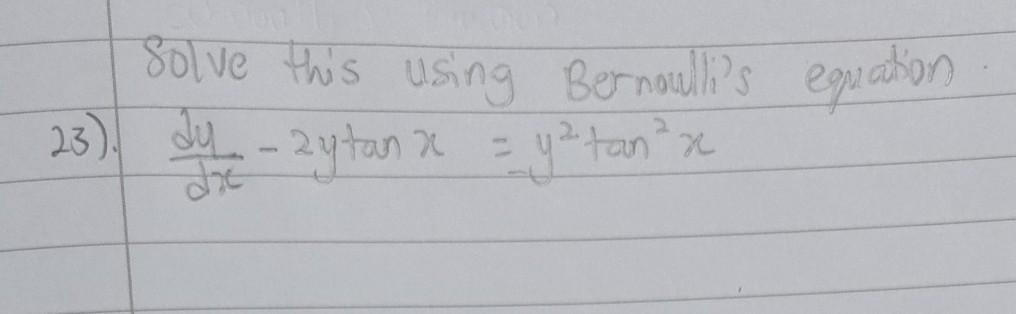 Solve this using Bernoulli's equation.
23). dy/dx - 2y tan x = y² tan² x